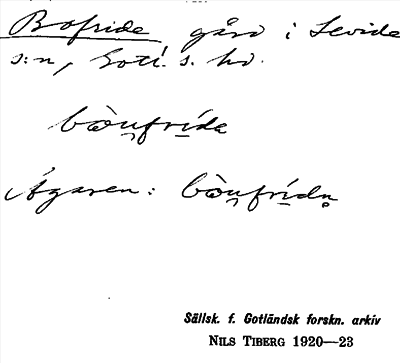 Bofride gård i Levide
s:n, Gotl. s. hd.
bòu̯fríde
Ägaren: bòu̯frídn̥
Sällsk. f. Gotländsk forskn. arkiv
NILS TIBERG 1920—23